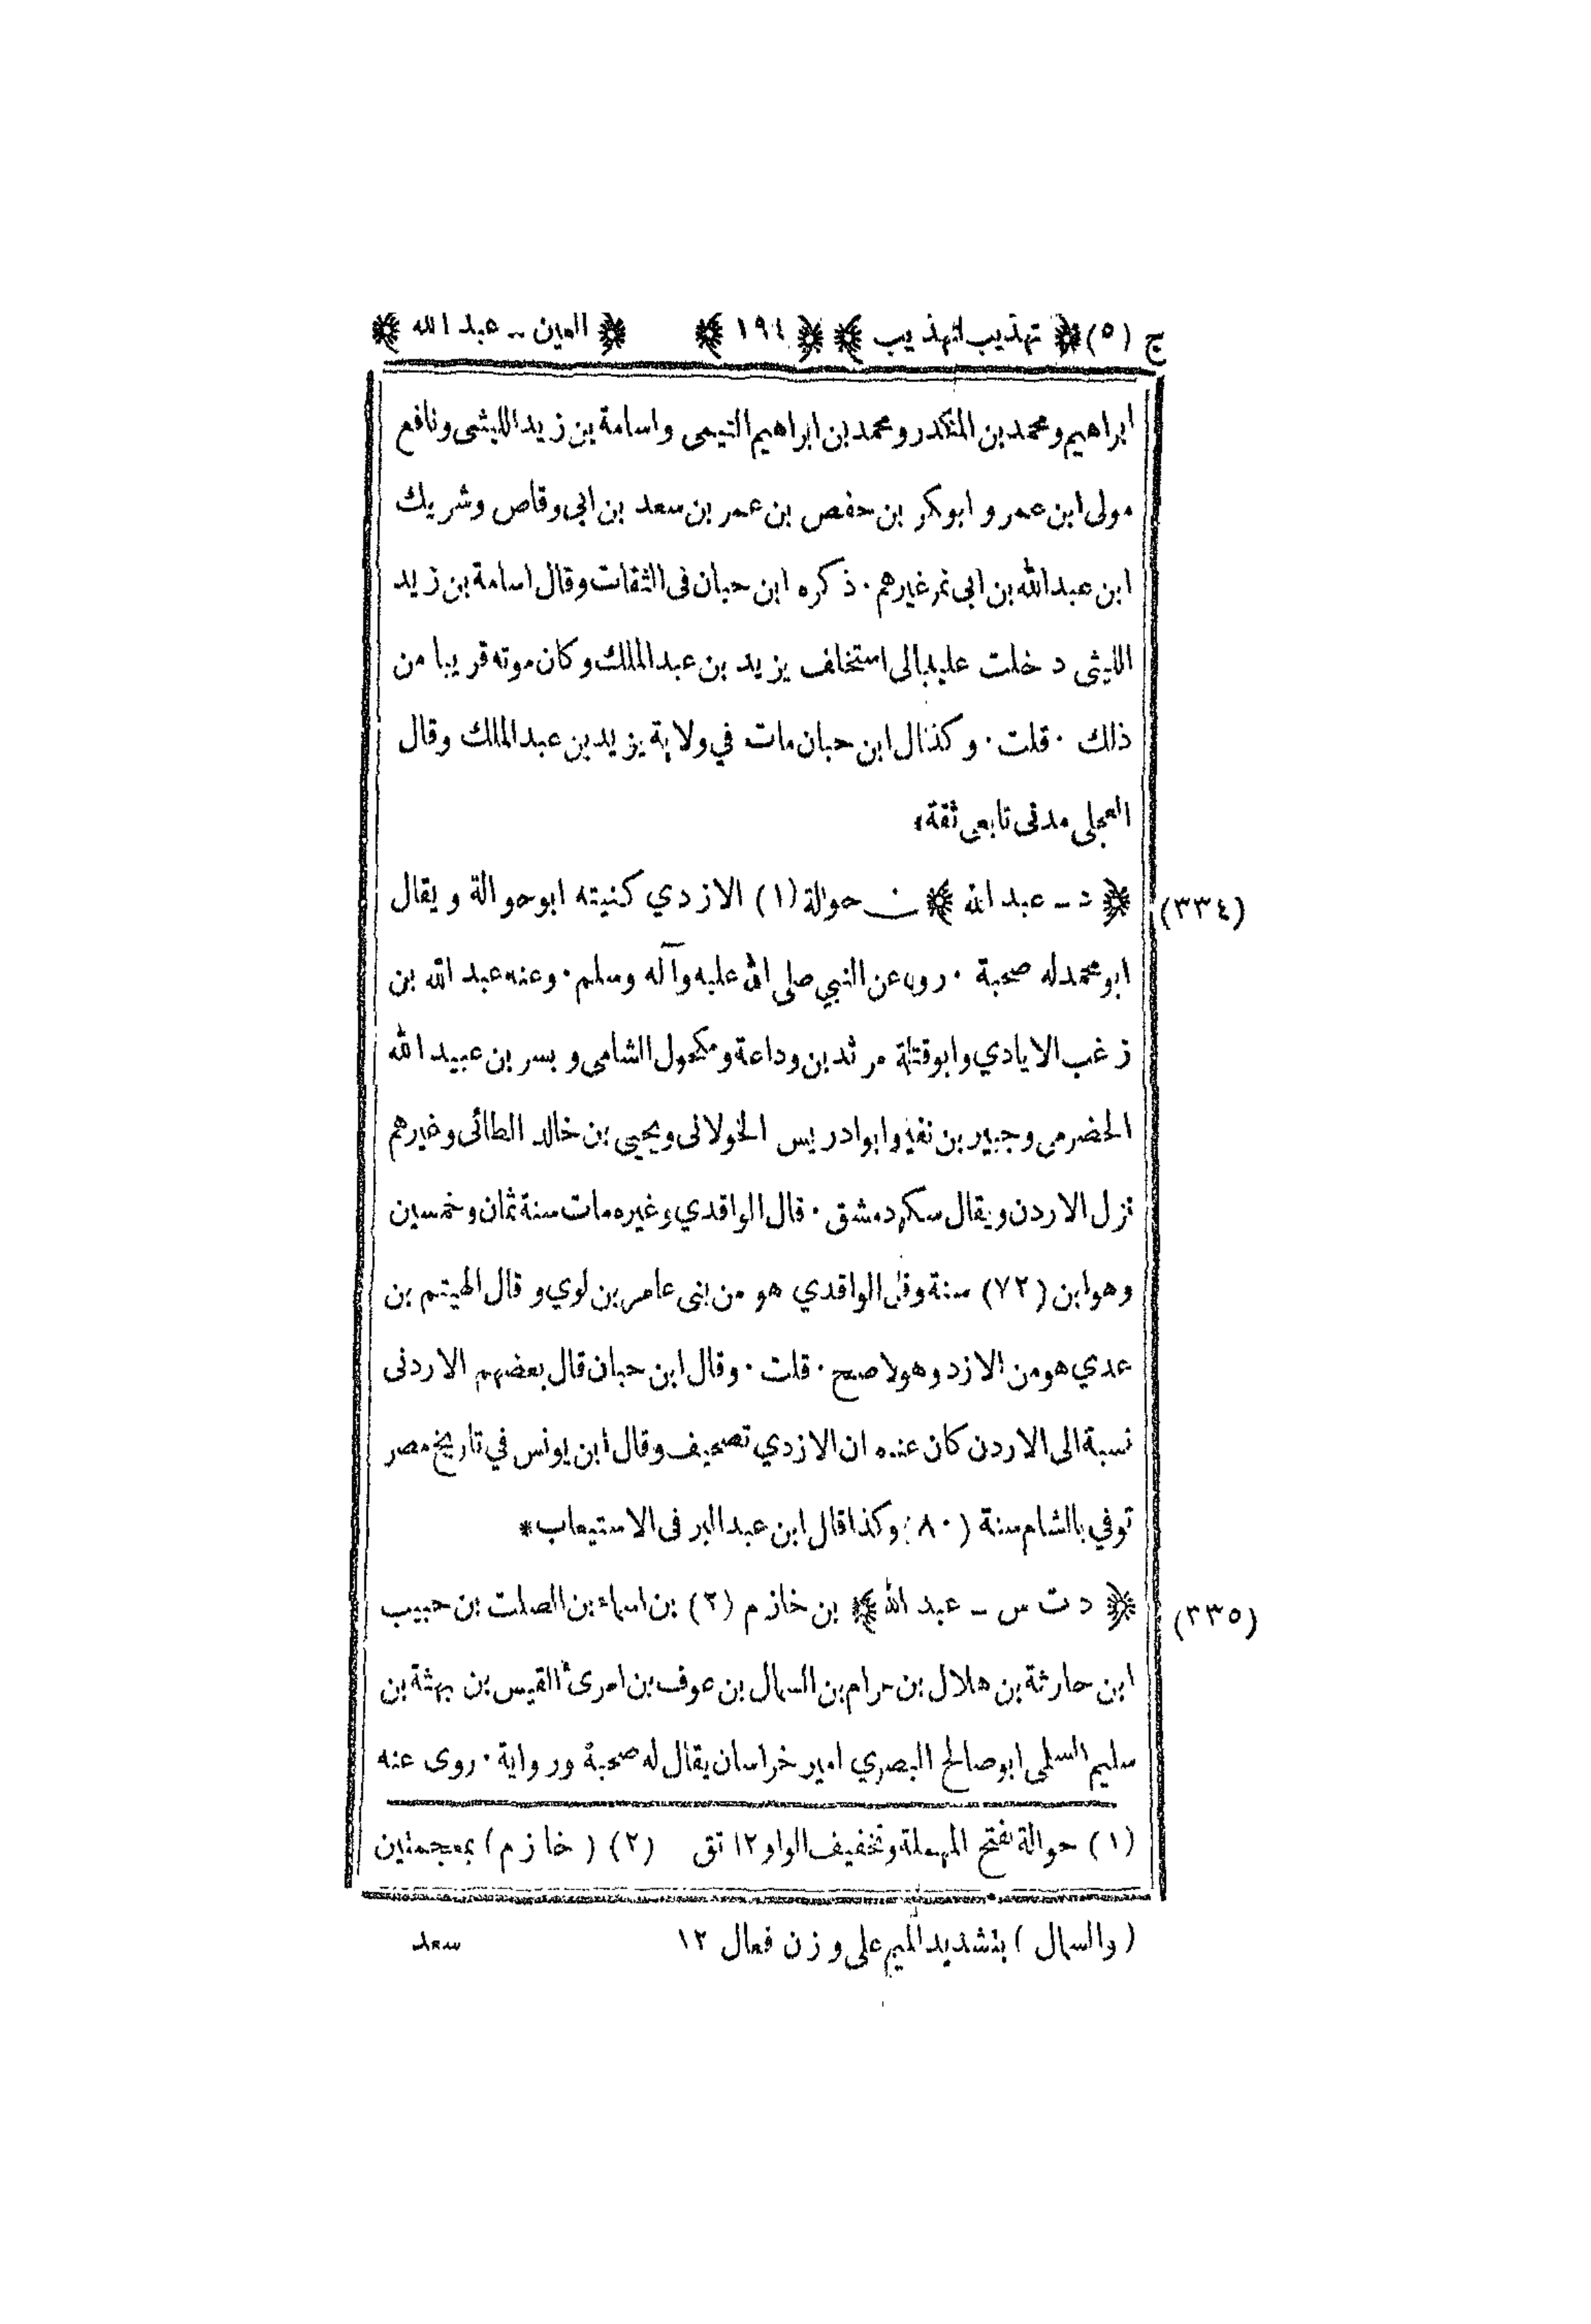 ج (٥) ﴿ تهذيب التهذيب ﴾ ﴿ ١٩٤ ﴾ ﴿ العين - عبد الله ﴾
ابراهيم ومحمد بن المنكدر ومحمد بن ابراهيم التيمى واسامة بن زيد الليثى ونافع
مولى ابن عمر و ابوبكر بن حفص بن عمر بن سعد بن ابى وقاص وشريك
ابن عبدالله بن ابى نمر غيرهم · ذكره ابن حبان فى الثقات وقال اسامة بن زيد
الليثى دخلت عليه ليالى استخلف يزيد بن عبدالملك وكان موته قريبا من
ذلك · قلت · وكذا قال ابن حبان مات في ولاية يزيد بن عبد الملك وقال
العجلى مدنى تابعى ثقة *
(٣٣٤) ﴿ د - عبد الله ﴾ بن حوالة (١) الازدي كنيته ابوحوالة ويقال
ابومحمد له صحبة · روى عن النبي صلى الله عليه وآله وسلم · وعنه عبد الله بن
زغب الايادي وابوقتيلة مرثد بن وداعة ومكحول الشامى و بسر بن عبيد الله
الحضرمى وجبير بن نفير وابوادريس الخولانى ويحيى بن خالد الطائى وغيرهم
نزل الاردن ويقال سكن دمشق · قال الواقدي وغيره مات سنة ثمان وخمسين
وهو ابن (٧٢) سنة وقال الواقدي هو من بنى عامر بن لوي و قال الهيثم بن
عدي هو من الازد وهو الاصح · قلت · وقال ابن حبان قال بعضهم الاردنى
نسبة الى الاردن كان عنده ان الازدي تصحيف وقال ابن يونس في تاريخ مصر
توفي بالشام سنة (٨٠) وكذا قال ابن عبدالبر فى الاستيعاب *
(٣٣٥) ﴿ د ت س - عبد الله ﴾ بن خازم (٢) بن اسماء بن الصلت بن حبيب
ابن حارثة بن هلال بن حرام بن السمال بن عوف بن امرئ القيس بن بهثة بن
سليم السلمى ابوصالح البصري امير خراسان يقال له صحبة ورواية · روى عنه
(١) حوالة بفتح المهملة وتخفيف الواو ١٢ تق (٢) (خازم) بمعجمتين
(والسمال) بتشديد الميم على وزن فعال ١٢ سعد